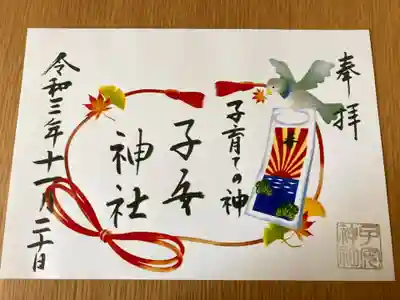 奉拝
子育ての神
子安
神社
令和三年十一月二十日
子安
神社